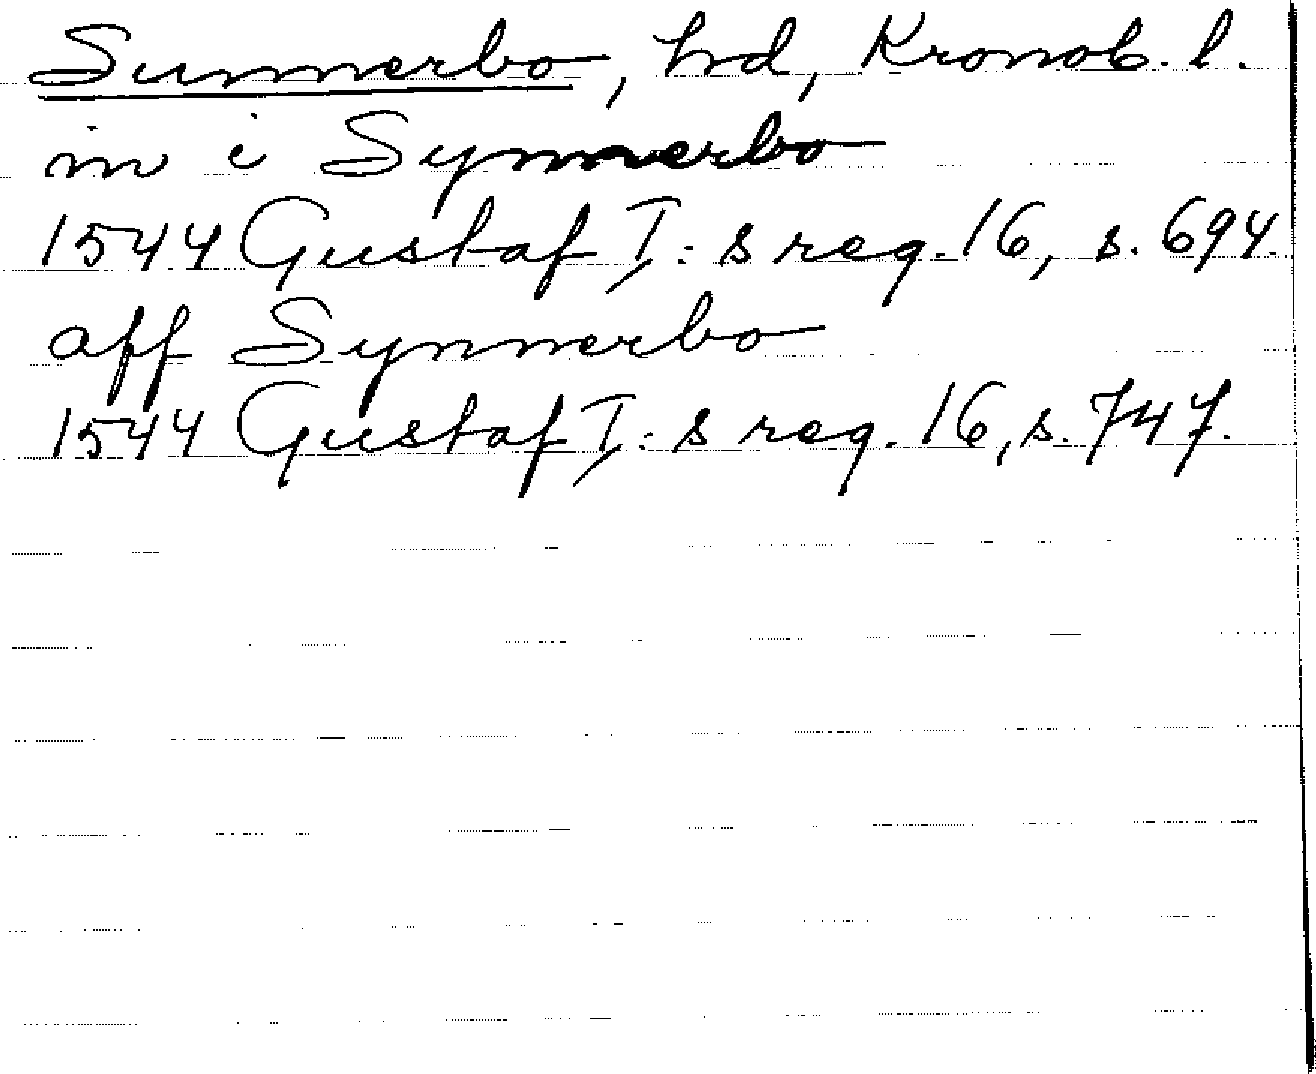 Sunnerbo, hd, Kronob. l.
in i Synnerbo
1544 Gustaf I: s reg. 16, s. 694.
aff Synnerbo
1544 Gustaf I: s reg. 16, s. 747.